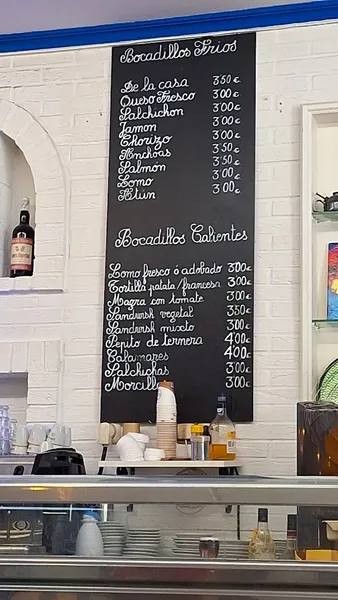 Bocadillos Frios
De la casa 3'50€
Queso Fresco 3'00€
Salchichon 3'00€
Jamon 3'00€
Chorizo 3'00€
Anchoas 3'50€
Salmón 3'50€
Lomo 3'00€
Atún 3'00€
Bocadillos Calientes
Lomo fresco ó adobado 3'00€
Tortilla patata/francesa 3'00€
Magra con tomate 3'00€
Sandwsh vegetal 3'50€
Sandwsh mixto 3'00€
Pepito de ternera 4'00€
Calamares 4'00€
Salchichas 3'00€
Morcilla 3'00€